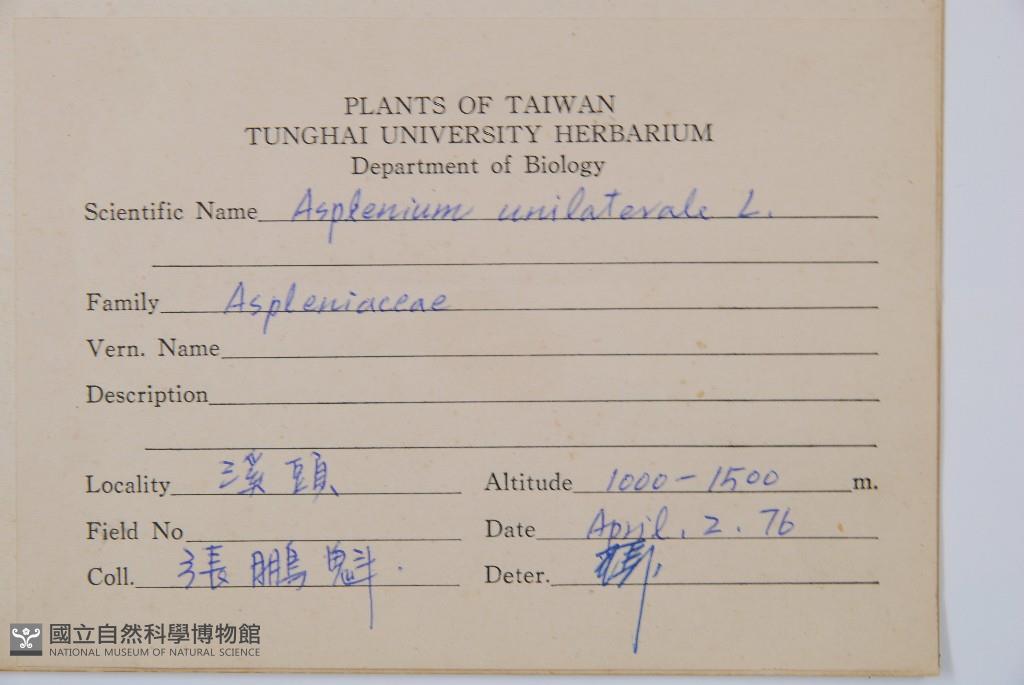 PLANTS OF TAIWAN
TUNGHAI UNIVERSITY HERBARIUM
Department of Biology
Scientific Name Asplenium unilaterale L.
Family Aspleniaceae
Vern. Name
Description
Locality 溪頭 Altitude 1000-1500 m.
Field No Date April. 2. 76
Coll. 張鵬魁. Deter.
國立自然科學博物館
NATIONAL MUSEUM OF NATURAL SCIENCE